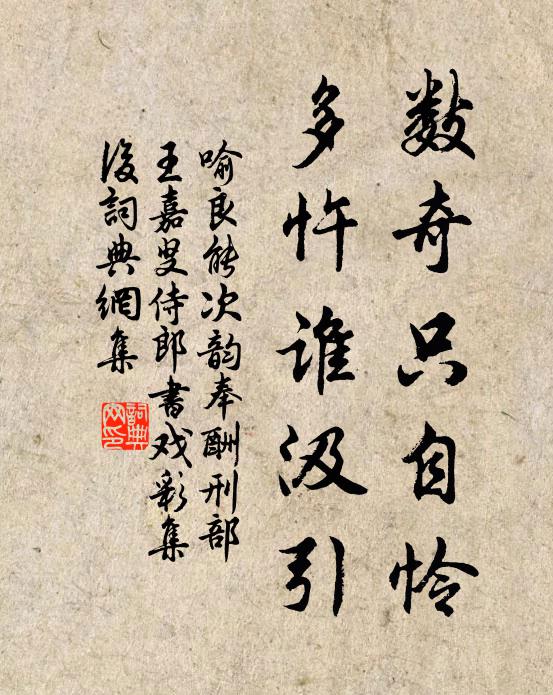 数奇只自怜
多忤谁汲引
喻良能次韵奉酬刑部
王嘉叟侍郎书戏彩集
后词典網集
詞典网印